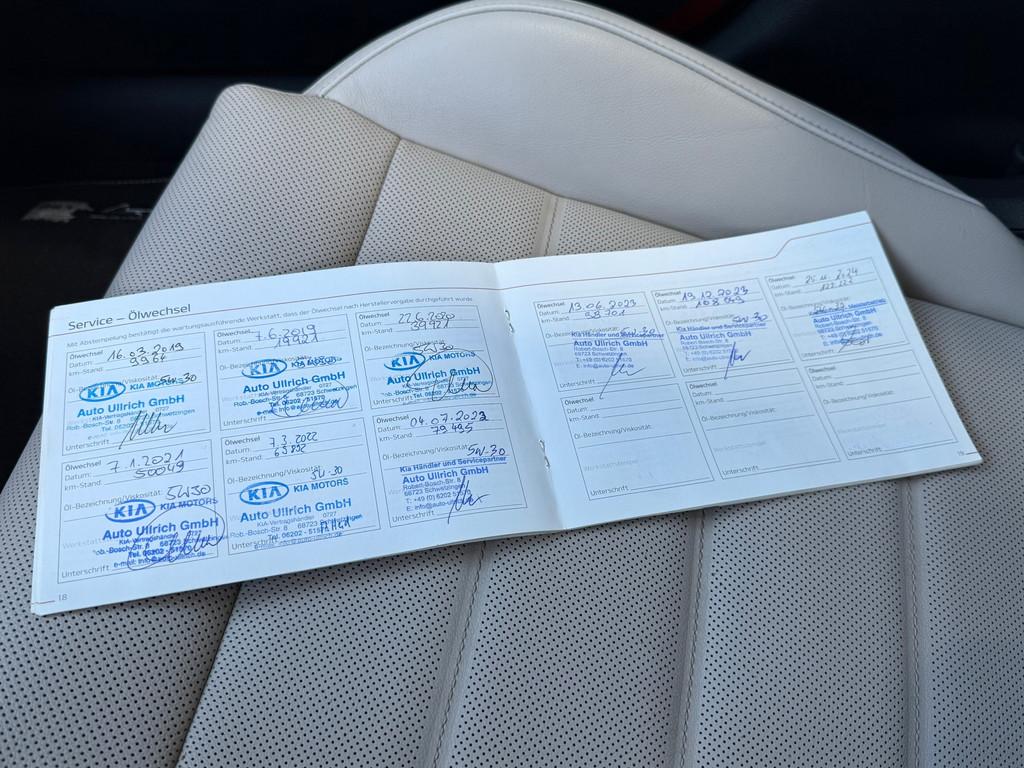 Service – Ölwechsel
Mit Abstempelung bestätigt die wartungsausführende Werkstatt, dass der Ölwechsel nach Herstellervorgabe durchgeführt wurde.
Ölwechsel
Datum: 16.03.2019
km-Stand:
Öl-Bezeichnung/Viskosität: 5W-30
KIA KIA MOTORS
Auto Ullrich GmbH
KIA-Vertragshändler 0727
Rob.-Bosch-Str. 8 68723 Schwetzingen
Unterschrift
Ölwechsel
Datum: 7.6.2019
km-Stand: 19921
Öl-Bezeichnung/Viskosität
KIA KIA MOTORS
Auto Ullrich GmbH
KIA-Vertragshändler 0727
Rob.-Bosch-Str. 8 68723 Schwetzingen
Tel. 06202 - 51570
Unterschrift
Ölwechsel
Datum: 22.6.2020
km-Stand: 39921
Öl-Bezeichnung/Viskosität
5W-30
KIA KIA MOTORS
Auto Ullrich GmbH
KIA-Vertragshändler 0727
Rob.-Bosch-Str. 8 68723 Schwetzingen
Unterschrift
Ölwechsel
Datum: 7.1.2021
km-Stand: 50049
Öl-Bezeichnung/Viskosität: 5W30
KIA KIA MOTORS
Auto Ullrich GmbH
KIA-Vertragshändler 0727
Rob.-Bosch-Str. 8 68723 Schwetzingen
Tel. 06202 - 51570
Unterschrift
Ölwechsel
Datum: 7.3.2022
km-Stand: 63892
Öl-Bezeichnung/Viskosität: 5W-30
KIA KIA MOTORS
Auto Ullrich GmbH
KIA-Vertragshändler 0727
Rob.-Bosch-Str. 8 68723 Schwetzingen
Tel. 06202 - 51570
Unterschrift
Ölwechsel
Datum: 04.07.2022
km-Stand: 79495
Öl-Bezeichnung/Viskosität: 5W-30
Kia Händler und Servicepartner
Auto Ullrich GmbH
Robert-Bosch-Str. 8
68723 Schwetzingen
T: +49 (0) 6202 51570
Unterschrift
18
Ölwechsel
Datum: 13.06.2023
km-Stand
Öl-Bezeichnung/Viskosität: 5W-30
Kia Händler und Servicepartner
Auto Ullrich GmbH
Robert-Bosch-Str. 8
68723 Schwetzingen
Unterschrift
Ölwechsel
Datum: 19.12.2023
km-Stand
Öl-Bezeichnung/Viskosität: 5W-30
Kia Händler und Servicepartner
Auto Ullrich GmbH
Robert-Bosch-Str. 8
68723 Schwetzingen
Unterschrift
Ölwechsel
Datum:
km-Stand
Auto Ullrich GmbH
Robert-Bosch-Str. 8
68723 Schwetzingen
Unterschrift
Ölwechsel
Datum:
km-Stand:
Öl-Bezeichnung/Viskosität:
Unterschrift
Ölwechsel
Datum:
km-Stand:
Öl-Bezeichnung/Viskosität:
Unterschrift
Ölwechsel
Datum:
km-Stand:
Öl-Bezeichnung/Viskosität:
Unterschrift
19